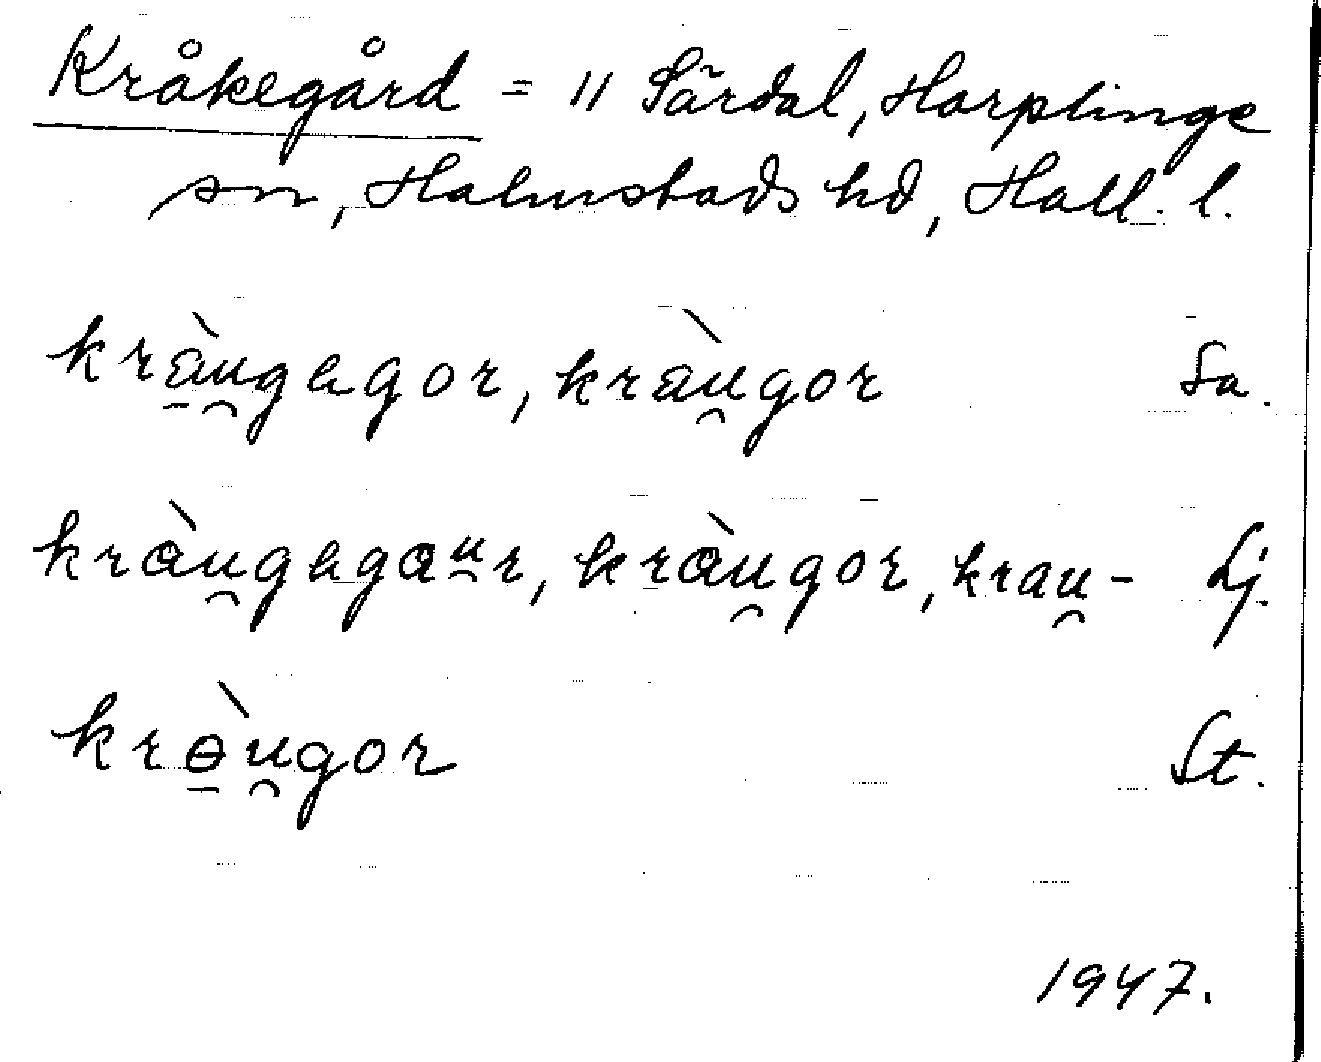 Kråkegård = " Särdal, Harplinge
sn, Halmstads hd, Hall. l.
kra̠ù̯gegor, kraù̯gor Sa.
krɑù̯gegɑᵘr, krɑù̯gor, krau̯- Lj.
krɵ̠ù̯gor St.
1947.